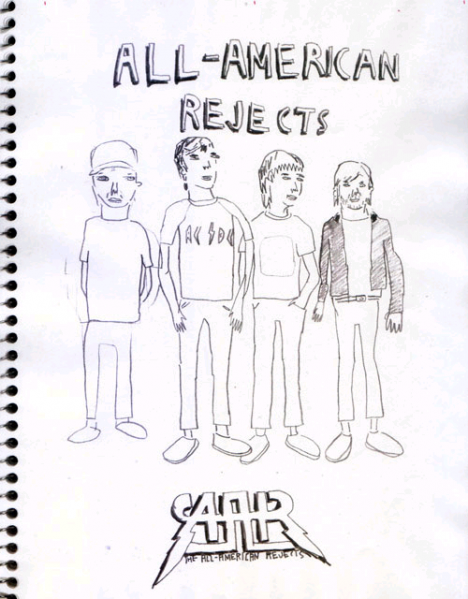 ALL-AMERICAN
REJECTS
AC DC
AAR
THE ALL-AMERICAN REJECTS